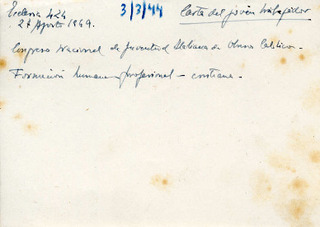 Ecclesia 424 3/3/44 Carta del joven trabajador
27 Agosto 1949.
Congreso Nacional de Juventud Italiana de Obrera Católica.
Formación humana, profesional - cristiana.